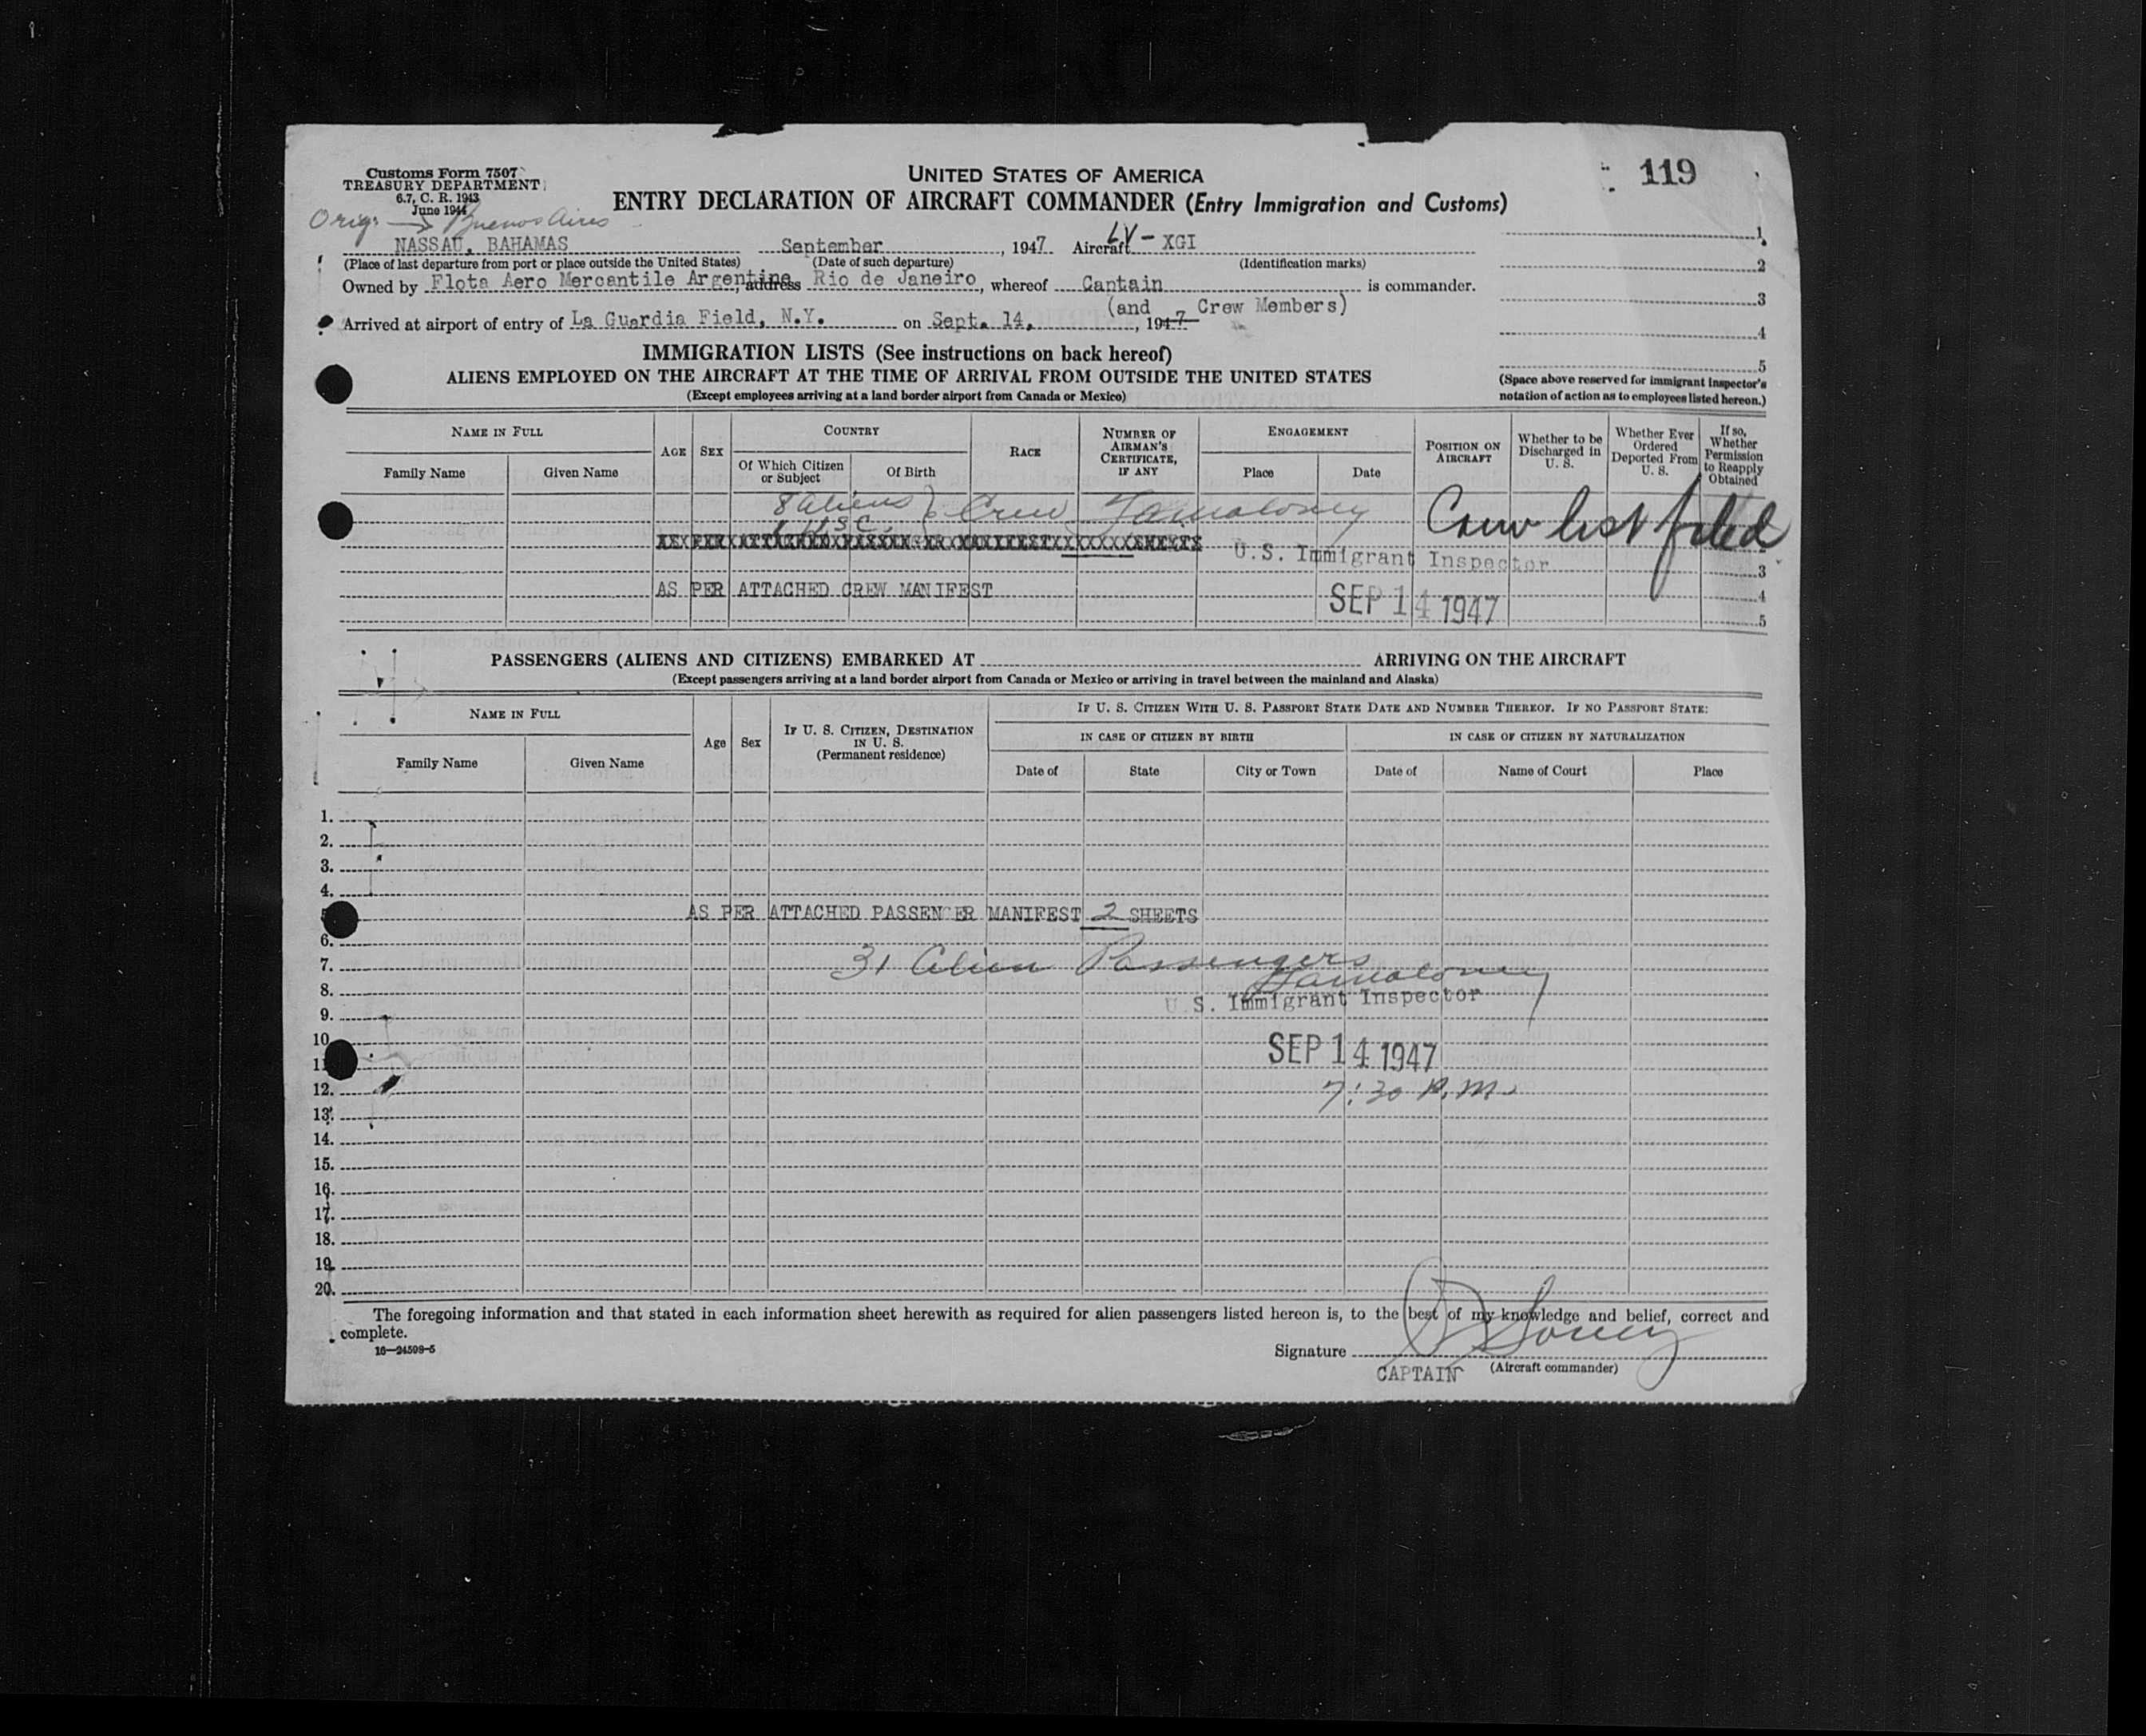 119
Customs Form 7507
TREASURY DEPARTMENT
6.7, C. R. 1943
June 1944
UNITED STATES OF AMERICA
ENTRY DECLARATION OF AIRCRAFT COMMANDER (Entry Immigration and Customs)
Orig. → Buenos Aires
NASSAU, BAHAMAS September, 1947 Aircraft LV-XGI
(Place of last departure from port or place outside the United States) (Date of such departure) (Identification marks)
Owned by Flota Aero Mercantile Argentine, address Rio de Janeiro, whereof Captain is commander.
(and Crew Members)
Arrived at airport of entry of La Guardia Field, N.Y. on Sept. 14, 1947
1
2
3
4
5
(Space above reserved for immigrant inspector's notation of action as to employees listed hereon.)
IMMIGRATION LISTS (See instructions on back hereof)
ALIENS EMPLOYED ON THE AIRCRAFT AT THE TIME OF ARRIVAL FROM OUTSIDE THE UNITED STATES
(Except employees arriving at a land border airport from Canada or Mexico)
NAME IN FULL
Family Name
Given Name
AGE
SEX
COUNTRY
Of Which Citizen or Subject
Of Birth
RACE
NUMBER OF AIRMAN'S CERTIFICATE, IF ANY
ENGAGEMENT
Place
Date
POSITION ON AIRCRAFT
Whether to be Discharged in U. S.
Whether Ever Ordered Deported From U. S.
If so, Whether Permission to Reapply Obtained
8 aliens } Crew
1 USC.
Crew list filed
U.S. Immigrant Inspector
3
AS PER ATTACHED CREW MANIFEST
SEP 14 1947
4
5
PASSENGERS (ALIENS AND CITIZENS) EMBARKED AT ARRIVING ON THE AIRCRAFT
(Except passengers arriving at a land border airport from Canada or Mexico or arriving in travel between the mainland and Alaska)
NAME IN FULL
Family Name
Given Name
Age
Sex
IF U. S. CITIZEN, DESTINATION IN U. S.
(Permanent residence)
IF U. S. CITIZEN WITH U. S. PASSPORT STATE DATE AND NUMBER THEREOF. IF NO PASSPORT STATE:
IN CASE OF CITIZEN BY BIRTH
IN CASE OF CITIZEN BY NATURALIZATION
Date of
State
City or Town
Date of
Name of Court
Place
1.
2.
3.
4.
AS PER ATTACHED PASSENGER MANIFEST 2 SHEETS
6.
7. 31 Alien Passengers
8.
U.S. Immigrant Inspector
9.
10
SEP 14 1947
11
12. 7:30 P.M.
13.
14.
15.
16.
17.
18.
19.
20.
The foregoing information and that stated in each information sheet herewith as required for alien passengers listed hereon is, to the best of my knowledge and belief, correct and
complete.
16—24598-5
Signature
CAPTAIN (Aircraft commander)